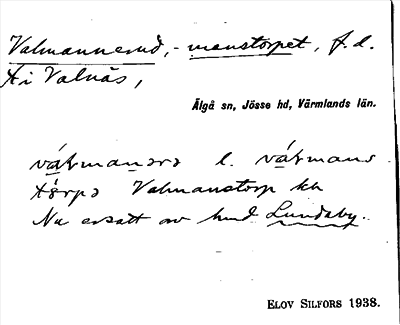 Valmannerud, - manstorpet, f.d.
t i Valnäs,
Älgå sn, Jösse hd, Värmlands län.
l.
Valmanstorp kb
Nu ersatt av hmd Lundaby.
ELOV SILFORS 1938.